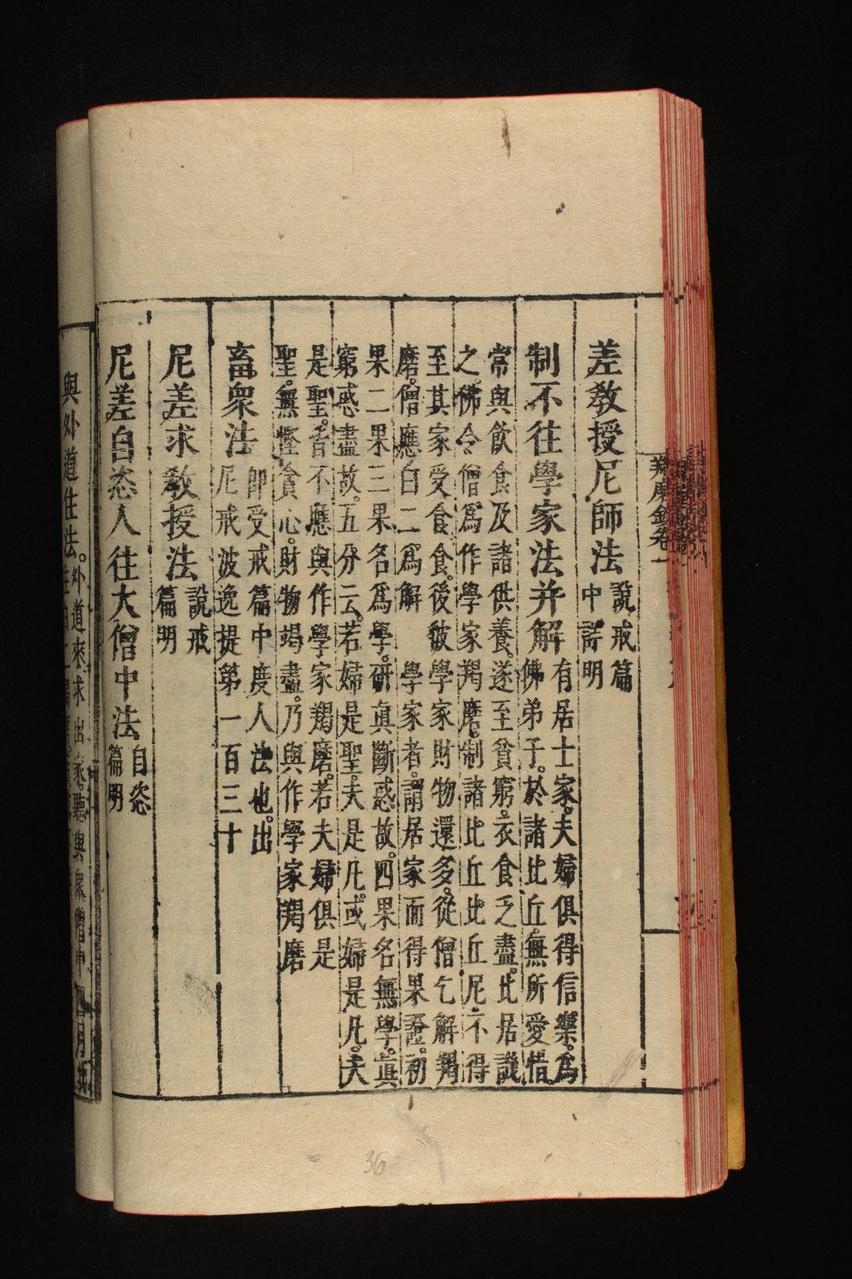 差教授尼師法 說戒篇
中諸明
制不往學家法并解 有居士家。夫婦俱得信樂。為
佛弟子。於諸比丘無所愛惜
常與飲食及諸供養。遂至貧窮。衣食乏盡。比居譏
之。佛令僧為作學家羯磨。制諸比丘比丘尼不得
至其家受食食。後彼學家財物還多。從僧乞解羯
磨。僧應白二為解 學家者。謂居家而得果證。初
果二果三果名為學。研真斷惑故。四果名無學。真
窮惑盡故。五分云。若婦是聖。夫是凡。或婦是凡。夫
是聖。皆不應與作學家羯磨。若夫婦俱是
聖。無慳貪心。財物竭盡。乃與作學家羯磨
畜眾法 即受戒篇中度人法也。出
尼戒波逸提第一百三十
尼差求教授法 說戒
篇明
尼差自恣人往大僧中法 自恣
篇明
與外道住法。外道來求出家。聽與眾僧中四月
羯磨 卷一